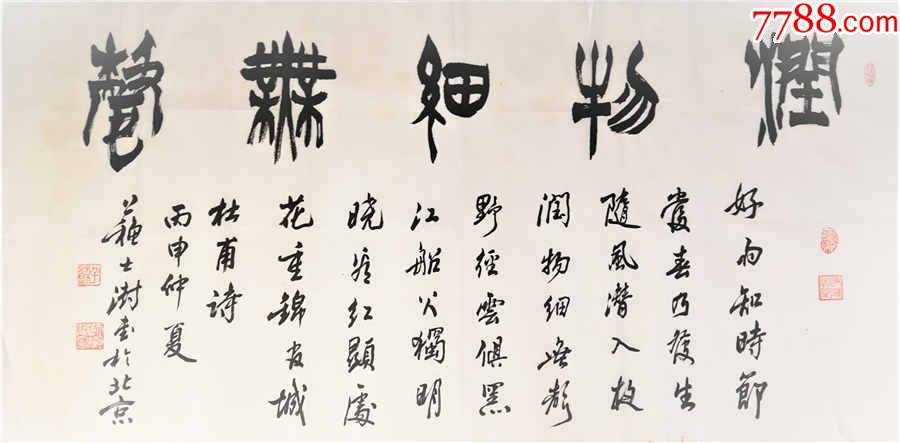 7788.com
潤物細無聲
好雨知時節
當春乃發生
隨風潛入夜
潤物細無聲
野徑雲俱黑
江船火獨明
曉看紅顯處
花重錦官城
杜甫詩
丙申仲夏
蘇士澍書於北京